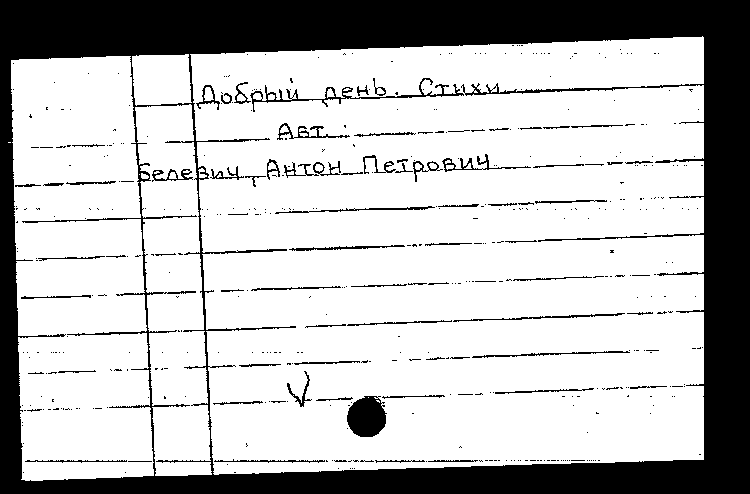 Добрый день. Стихи
Авт.:
Белевич, Антон Петрович